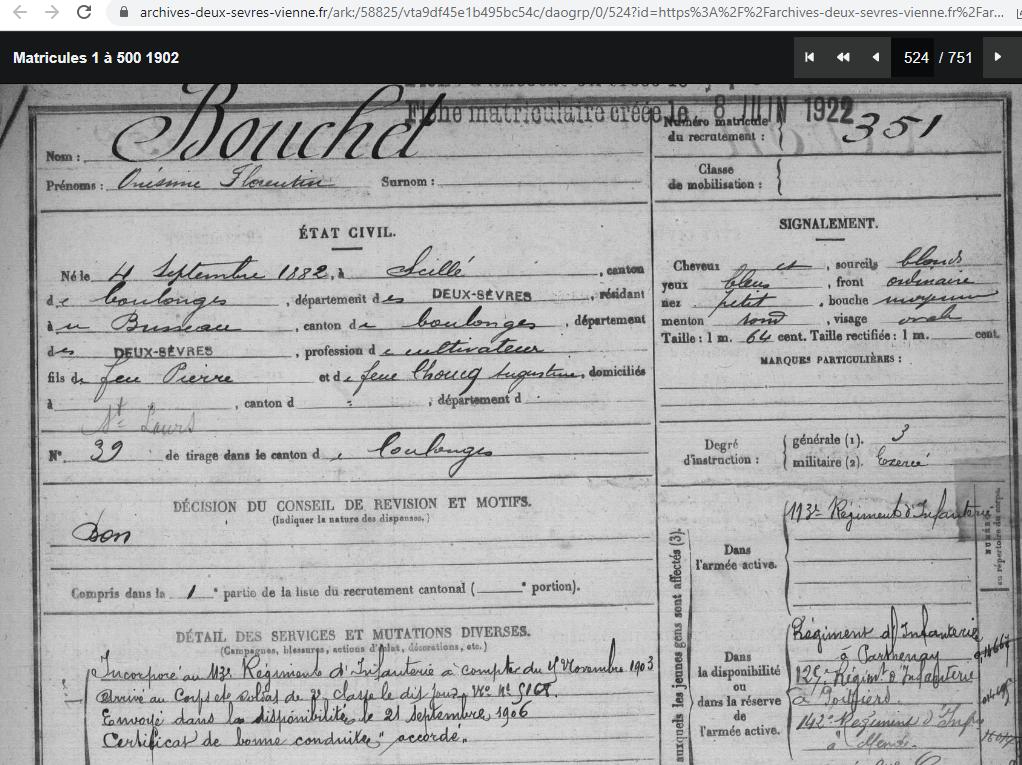 archives-deux-sevres-vienne.fr/ark:/58825/vta9df45e1b495bc54c/daogrp/0/524?id=https%3A%2F%2Farchives-deux-sevres-vienne.fr%2Far...
Matricules 1 à 500 1902
524 / 751
Fiche matriculaire créée le 8 JUIN 1922
Nom : Bouchet
Prénoms : Onésime Florentin Surnom :
Numéro matricule
du recrutement : 351
Classe
de mobilisation :
ÉTAT CIVIL.
Né le 4 Septembre 1882, à Scillé, canton
de Coulonges, département des DEUX-SÈVRES, résidant
à u Busseau, canton de Coulonges, département
des DEUX-SÈVRES, profession de cultivateur
fils de feu Pierre et de feue Choucq Augustine, domiciliés
à , canton d , département d
St Laurs
N° 39 de tirage dans le canton de Coulonges
SIGNALEMENT.
Cheveux et , sourcils blonds
yeux bleus , front ordinaire
nez petit , bouche moyenne
menton rond , visage ovale
Taille : 1 m. 64 cent. Taille rectifiée : 1 m. cent.
MARQUES PARTICULIÈRES :
Degré
d'instruction :
générale (1). 3
militaire (2). Exercé
DÉCISION DU CONSEIL DE REVISION ET MOTIFS.
(Indiquer la nature des dispenses.)
Bon
Compris dans la 1e partie de la liste du recrutement cantonal ( e portion).
DÉTAIL DES SERVICES ET MUTATIONS DIVERSES.
(Campagnes, blessures, actions d'éclat, décorations, etc.)
Incorporé au 113e Régiment d'Infanterie à compter du Novembre 1903
arrivé au Corps et soldat de 2e classe le dit jour
Envoyé dans la disponibilité le 21 septembre 1906
Certificat de bonne conduite "accordé".
auxquels les jeunes gens sont affectés (3).
NUMÉRO
au répertoire du corps.
Dans
l'armée active.
113e Régiment d'Infanterie
Dans
la disponibilité
ou
dans la réserve
de
l'armée active.
Régiment d'Infanterie
à Parthenay
125e Régimt d'Infanterie
à Poitiers
142e Régiment d'Infie
à Mende